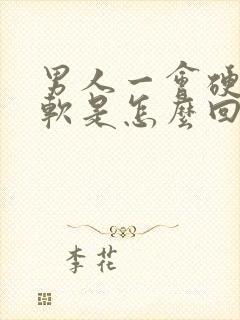 男人一會硬
軟是怎麼回
李花